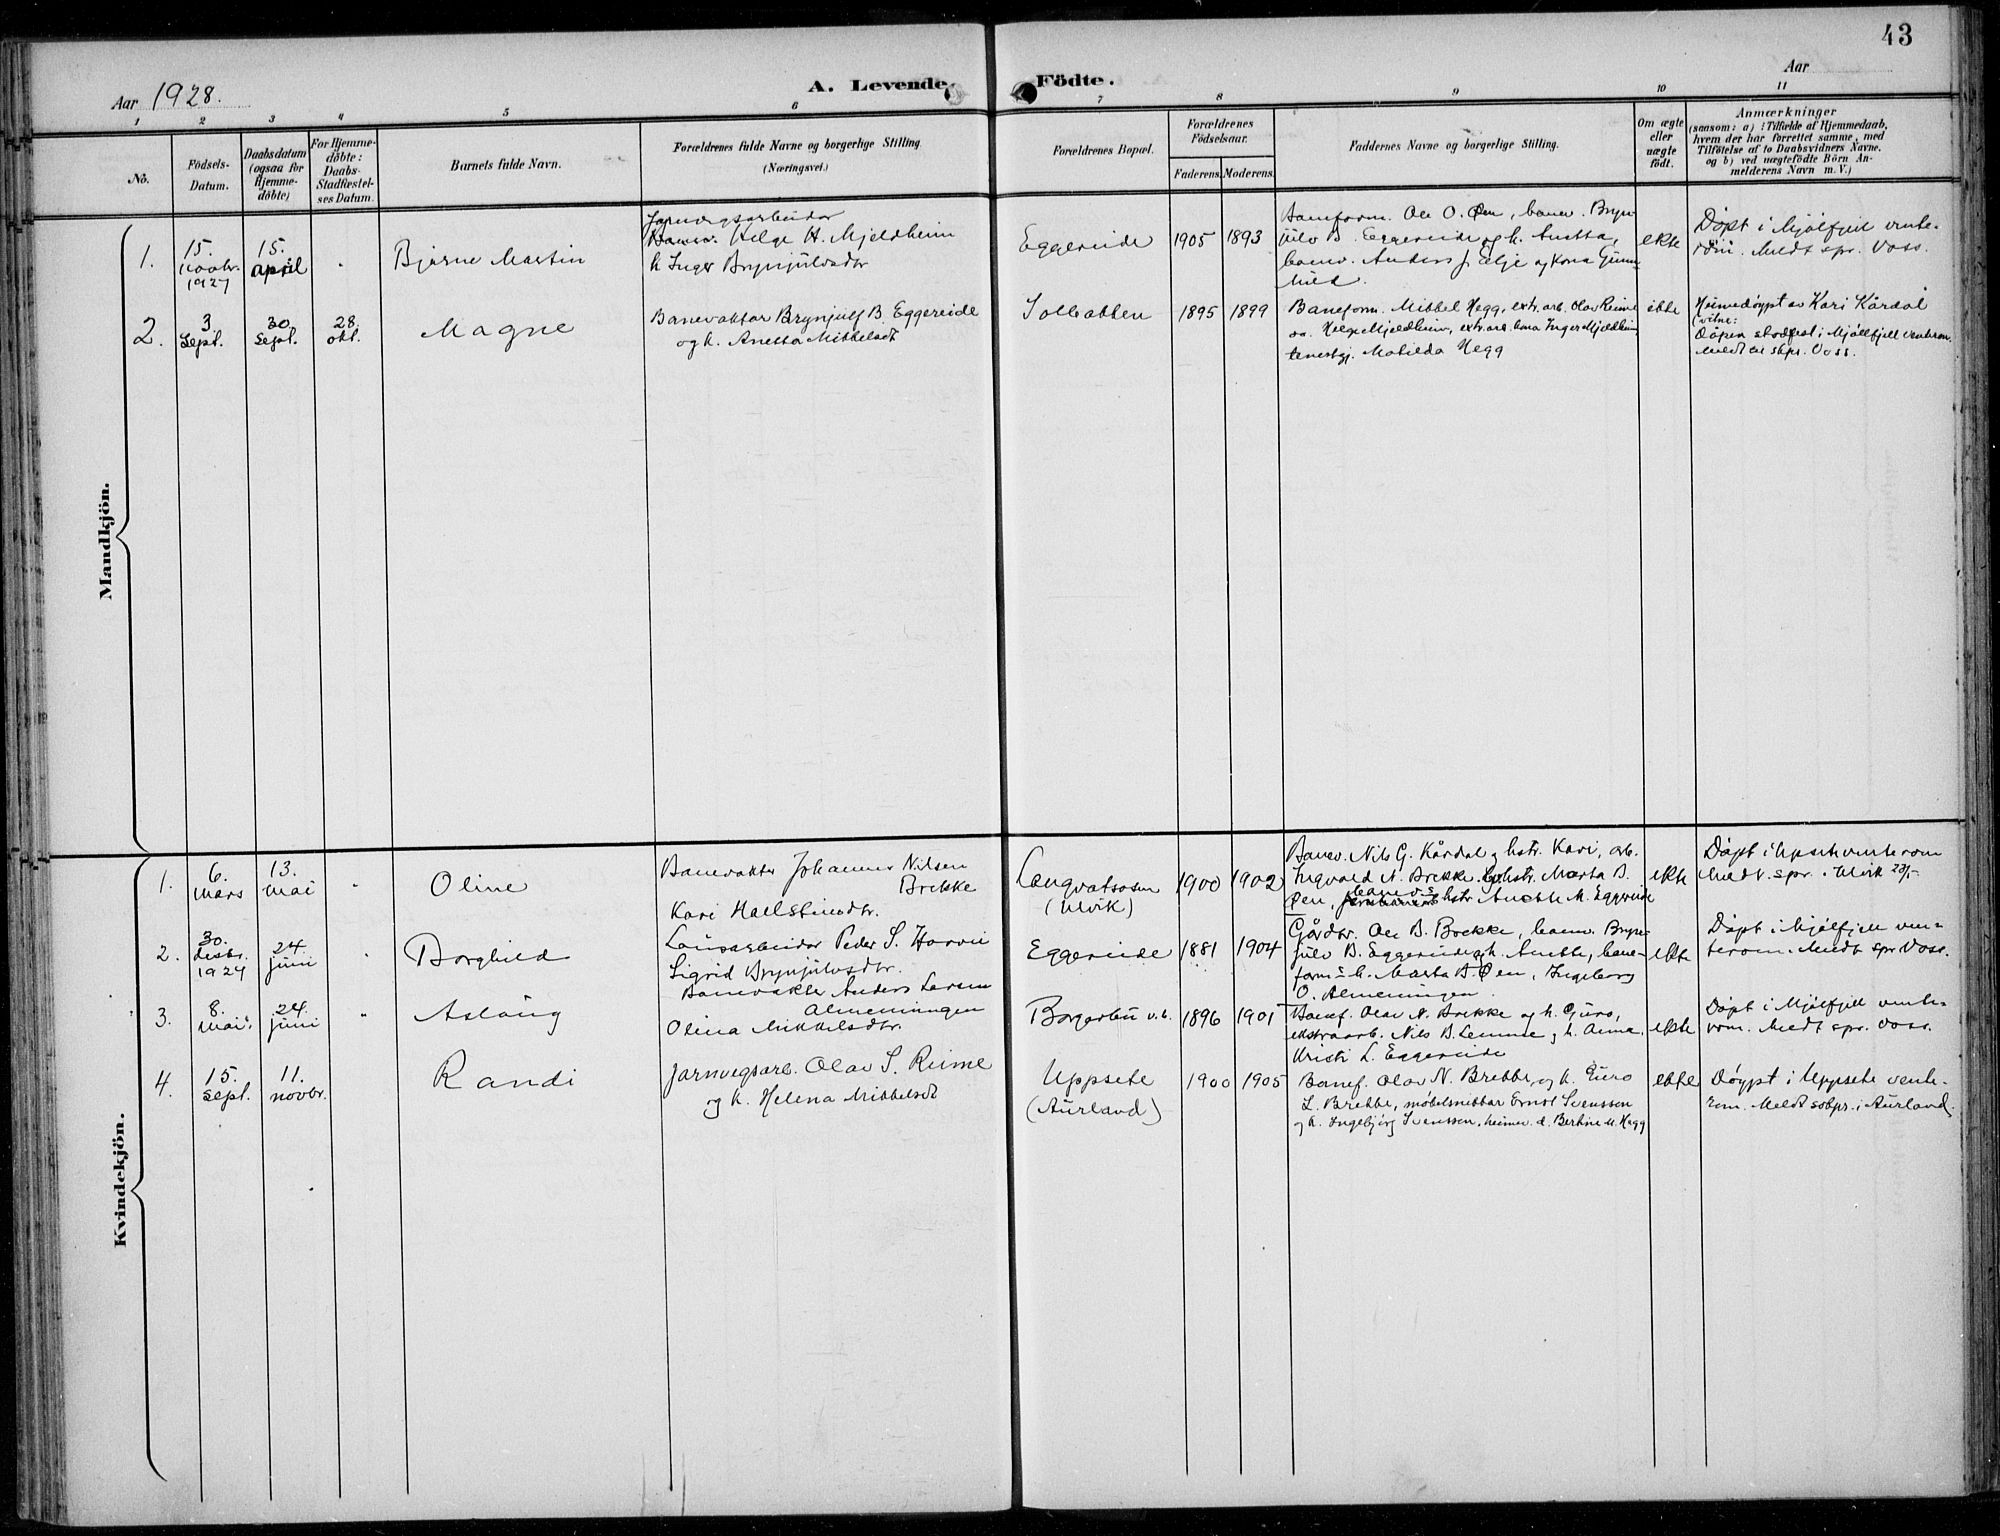 43
Aar 1928.
A. Levende
Födte.
Aar
1 2 3 4 5 6 7 8 9 10 11
No.
Födsels-
Datum.
Daabsdatum
(ogsaa for
Hjemme-
döbte)
For Hjemme-
döbte:
Daabs-
Stadfæstel-
ses Datum.
Barnets fulde Navn.
Forældrenes fulde Navne og borgerlige Stilling
(Næringsvei.)
Forældrenes Bopæl.
Forældrenes
Födselsaar.
Faderens. Moderens.
Faddernes Navne og borgerlige Stilling.
Om ægte
eller
uægte
födt.
Anmærkninger
(saasom: a) i Tilfælde af Hjemmedaab,
hvem der har forrettet samme, med
Tilföielse af to Daabsvidners Navne.
og b) ved uægtefödte Börn An-
melderens Navn m. V.)
Mandkjön.
1.
15.
novbr.
1927
15.
april
Bjarne Martin
Jarnvegsarbeidar
Helge H. Mjeldheim
k Inger Brynjulvsdtr
Eggereide
1905 1893
Baneform. Ole O. Øen, banev. Bryn-
julv B. Eggereide og k. Anetta,
banev. Anders J. og kona
ekte
Döpt i Mjölfjell vente-
rom. Meldt spr. Voss.
2.
3
Sept.
30.
Sept.
28.
okt.
Magne
Banevaktar Brynjulf B. Eggereide
og k. Anetta Mikkelsdt
1895 1899
Baneform. Mikkel Hegg, extr.arb. Olav Reime
Helge Mjeldheim, extr.arb. kona Inger Mjeldheim
tenestgj. Matilda Hegg
ekte
Heimedøypt av Kari Kårdal
(vitne:
Dåpen stadfest i Mjölfjell venterom.
Meldt til sokpr. Voss.
Kvindekjön.
1.
6.
mars
13.
mai
"
Oline
Banevakter Johannes Nilsen
Brekke
Kari Hallsteinsdtr.
Langvatsosen
(Ulvik)
1900 1902
Banev. Nils G. Kårdal og hstr. Kari, arb.
Ingvald N. Brekke, hstr. Marta B.
Øen, banev.s hstr Anette M. Eggereide
ekte
Döpt i Upsete venterom
Meldt spr. i Ulvik 23/5-
2.
30.
desbr.
1927
24
juni
"
Borghild
Lausarbeidar Peder S.
Sigrid Brynjulvsdtr.
Eggereide
1881 1904
Gårdbr. Ole B. Brekke, banev. Bryn-
julv B. Eggereide og k. Anette, bane-
form.s k. Marta B. Øen, Ingeborg
O. Almenningen.
ekte
Döpt i Mjölfjell ven-
terom. Meldt spr. Voss.
3.
8.
mai
24.
juni
"
Aslaug
Banevakter Anders Larsen
Almenningen
Olina Mikkelsdtr.
1896 1901
Banef. Olav N. Brekke og k. Guro,
ekstraarb. Nils B. Lemme og k. Anna.
Kristi L. Eggereide
ekte
Döpt i Mjölfjell vente-
rom. Meldt spr. Voss.
4.
15.
sept.
11.
novbr.
Randi
Jarnvegsarb. Olav S. Reime
og k. Helena Mikkelsdt
Uppsete
(Aurland)
1900 1905
Banef. Olav N. Brekke, og k. Guro
L. Brekke, møbelsnikkar Ernst Svenssen
og k. Ingebjørg Svenssen, heimev. d. Bertine M. Hegg
ekte
Døypt i Uppsete vente-
rom. Meldt sokpr. i Aurland.